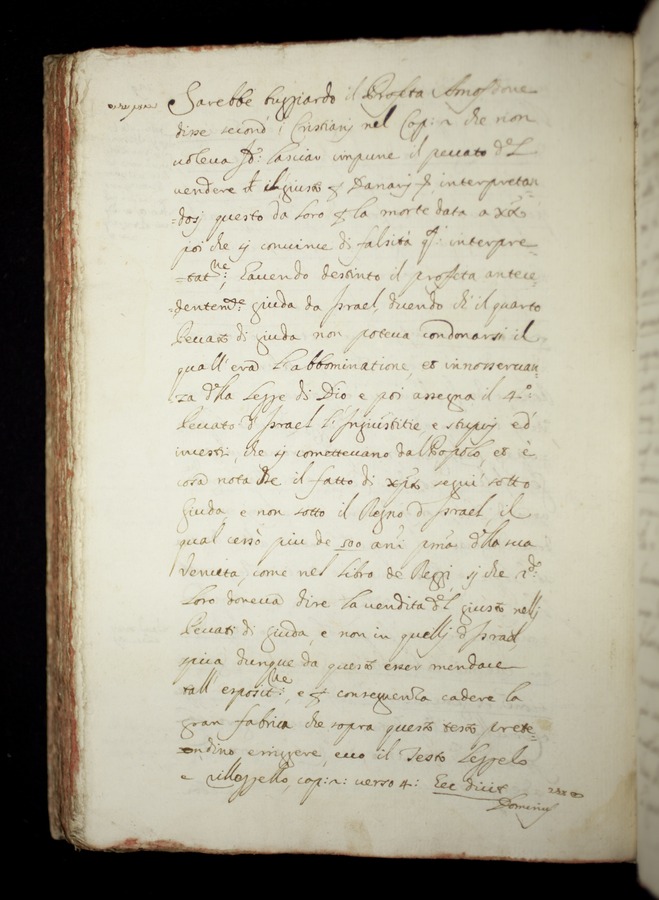 Sarebbe buggiardo il Profeta Amos dove
disse second' i Cristiani nel Cap: 2 che non
voleva Id: lasciar impune il peccato del
vendere il giusto p Danari interpretan
=dosi questo da loro p la morte data a
poi che si convince di falsità interpre=
=tat:ne, havendo destinto il profeta antece=
=dentem:te giuda da Israel, dicendo ch' il quarto
Peccato di giuda non poteva condonarsi il
quall' era l'abbominatione, et innosservan=
za della Legge di Dio e poi assegna il 4°:
Peccato d' Israel l'Ingiustitie, e stuprij ed
incesti, che si comettevano dal Popolo, et è
cosa nota che il fatto di seguì sotto
giuda, e non sotto il Regno d' Israel il
qual cessò piu de 500 ani pma della sua
Venuta, come nel Libro de Reggi, si che
loro doveva dire la vendita del giusto nelli
Peccati di giuda, e non in quelli d'Israel
dunque da questo esser mendace
tall' esposit:ne, e p conseguenza cadere la
gran fabrica che sopra questo testo prete=
=ndino erriggere, ecco il Testo Leggelo
e rilleggello, cap: 2: verso 4: Hec dicit
Dominus